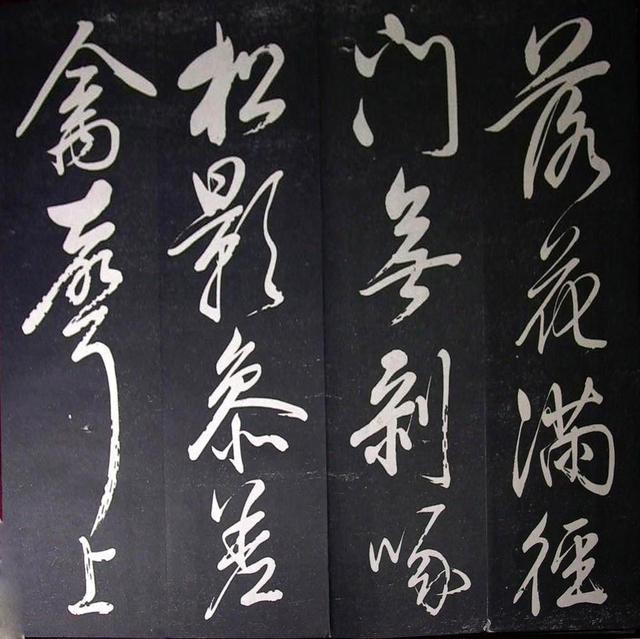 落花滿徑
門無剥啄
松影參差
禽聲上